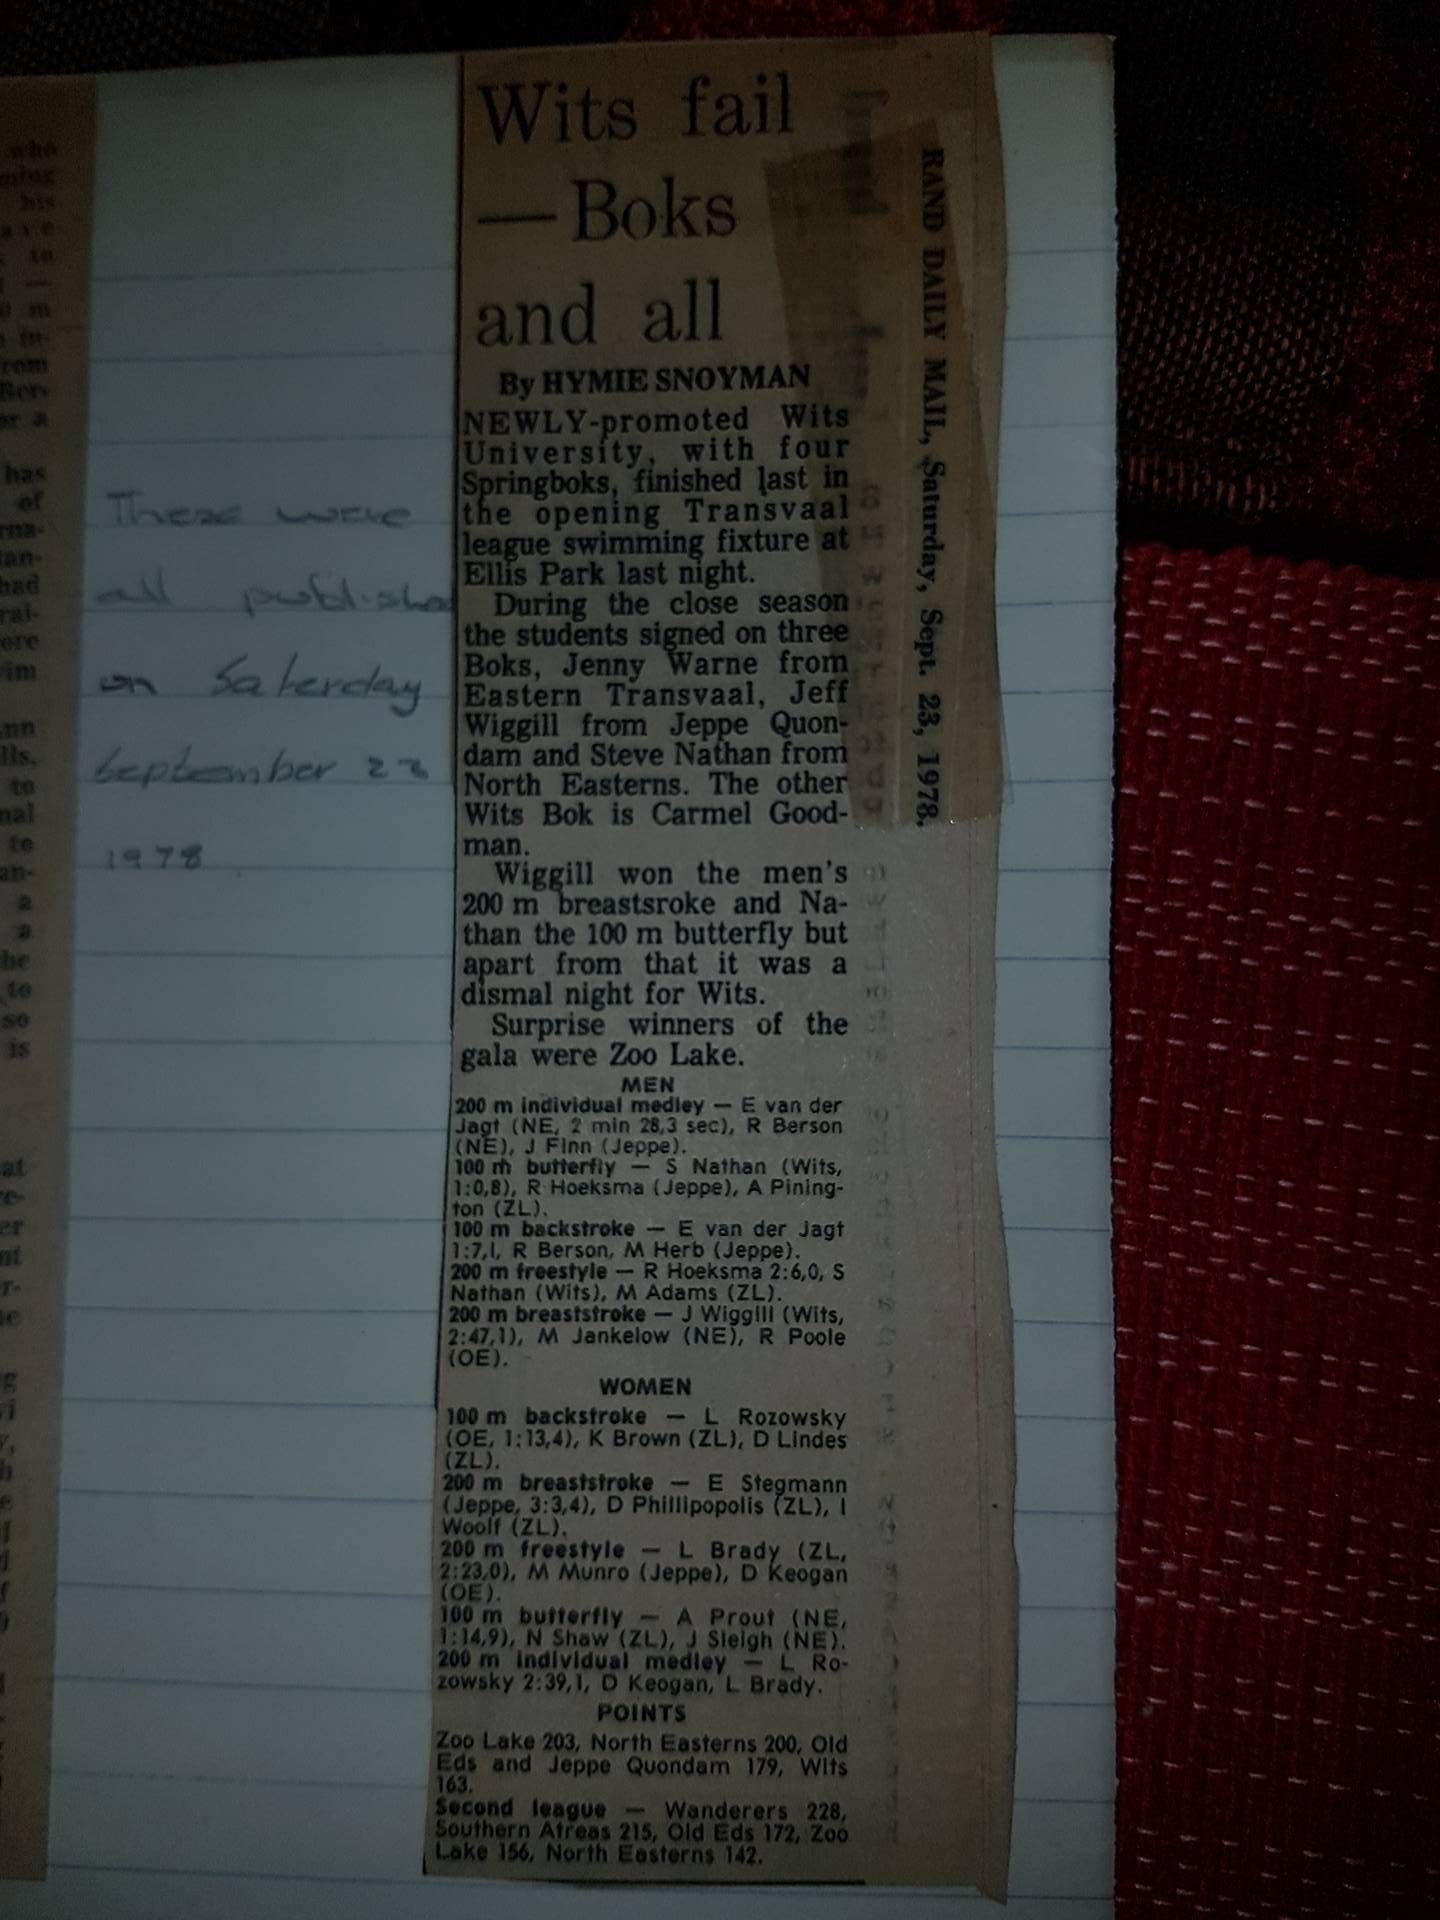 Wits fail
— Boks
and all
By HYMIE SNOYMAN
NEWLY-promoted Wits
University, with four
Springboks, finished last in
the opening Transvaal
league swimming fixture at
Ellis Park last night.
During the close season
the students signed on three
Boks, Jenny Warne from
Eastern Transvaal, Jeff
Wiggill from Jeppe Quon-
dam and Steve Nathan from
North Easterns. The other
Wits Bok is Carmel Good-
man.
Wiggill won the men's
200 m breastsroke and Na-
than the 100 m butterfly but
apart from that it was a
dismal night for Wits.
Surprise winners of the
gala were Zoo Lake.
MEN
200 m individual medley — E van der
Jagt (NE, 2 min 28,3 sec), R Berson
(NE), J Finn (Jeppe).
100 m butterfly — S Nathan (Wits,
1:0,8), R Hoeksma (Jeppe), A Pining-
ton (ZL).
100 m backstroke — E van der Jagt
1:7,1, R Berson, M Herb (Jeppe).
200 m freestyle — R Hoeksma 2:6,0, S
Nathan (Wits), M Adams (ZL).
200 m breaststroke — J Wiggill (Wits,
2:47,1), M Jankelow (NE), R Poole
(OE).
WOMEN
100 m backstroke — L Rozowsky
(OE, 1:13,4), K Brown (ZL), D Lindes
(ZL).
200 m breaststroke — E Stegmann
(Jeppe, 3:3,4), D Phillipopolis (ZL), I
Woolf (ZL).
200 m freestyle — L Brady (ZL,
2:23,0), M Munro (Jeppe), D Keogan
(OE).
100 m butterfly — A Prout (NE,
1:14,9), N Shaw (ZL), J Sleigh (NE).
200 m individual medley — L Ro-
zowsky 2:39,1, D Keogan, L Brady.
POINTS
Zoo Lake 203, North Easterns 200, Old
Eds and Jeppe Quondam 179, Wits
163.
Second league — Wanderers 228,
Southern Atreas 215, Old Eds 172, Zoo
Lake 156, North Easterns 142.
RAND DAILY MAIL, Saturday, Sept. 23, 1978.
These were
all publishe
on Saterday
September 23
1978